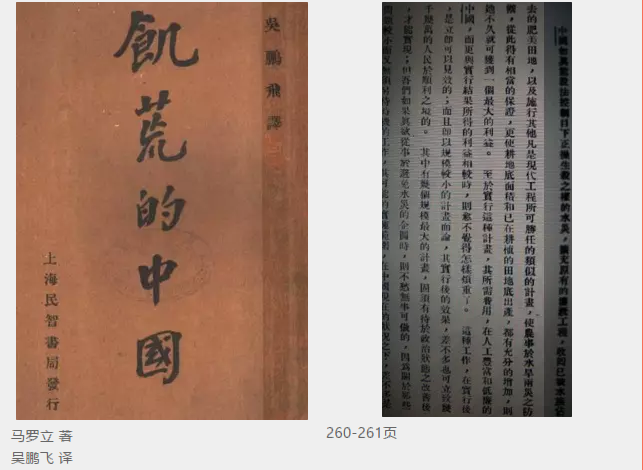 吳鵬飛譯
飢荒的中國
上海民智書局發行
中國如果能設法控制目下正操生殺之權的水災，擴充原有的灌溉工程，收回已被水
去的肥美田地，以及施行其他凡是現代工程所可勝任的類似的計畫，使農事於水旱兩災之防
禦，從此得有相當的保證，更使耕地底面積和已在耕植的田地底出產，都有充分的增加，則
她不久就可獲到一個最大的利益。 至於實行這種計畫，其所需費用，在人工豐富和低廉的
中國，而更與實行結果所得的利益相較時，則並不覺得怎樣煩重了。 這種工作，在實行後
，是立即可以見效的；而且即以規模較小的計畫而論，其實行後的效果，差不多也可立致幾
千幾萬的人民於順利之境的。 其中有幾個規模最大的計畫，固須有待於政治狀態之改善後
，才能實現；但吾們如果真欲從事於避免水災的企圖時，則不愁無事可做的，因爲關於那些
马罗立 著
吴鹏飞 译
260-261页